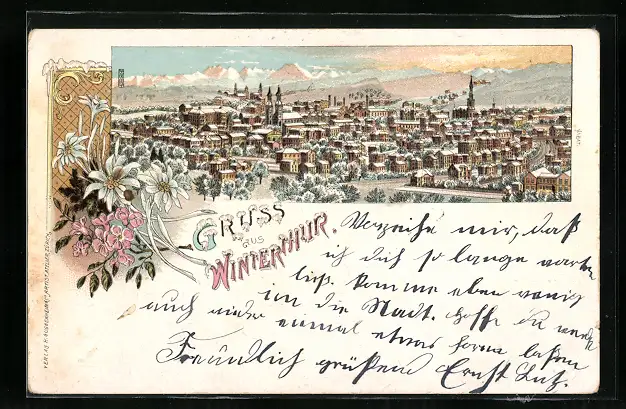 GRUSS
AUS
WINTERTHUR.
Verzeihe mir, daß
ich dich so lange warten
ließ. komme eben wenig
in die Stadt. hoffe du werdest
auch wieder einmal etwas hören laßen
Freundlich grüßend Ernst Lutz.